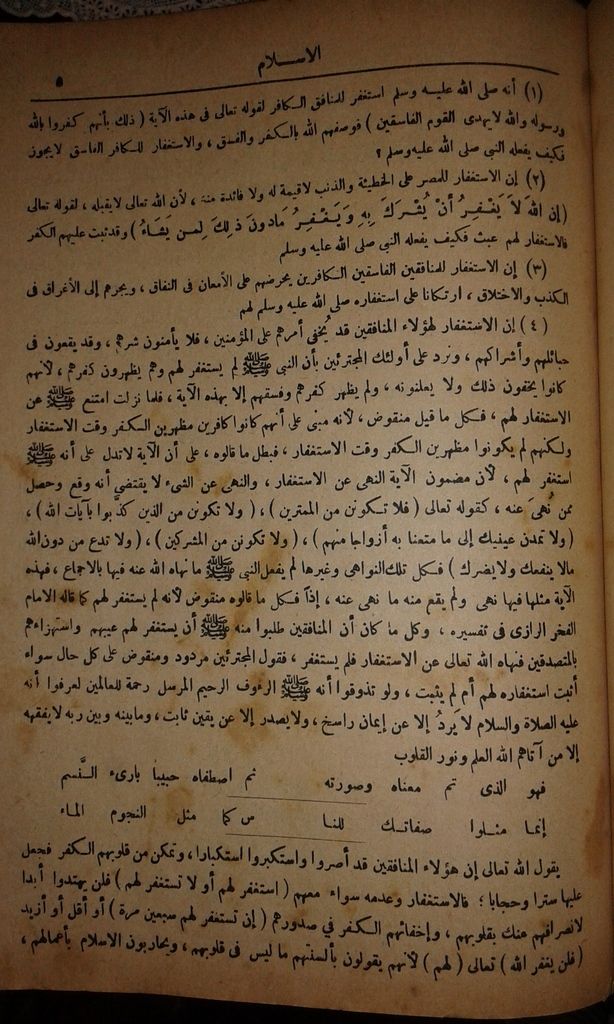 الاسلام
٥
(١) أنه صلى الله عليه وسلم استغفر للمنافق الكافر لقوله تعالى فى هذه الآية ( ذلك بأنهم كفروا بالله
ورسوله والله لايهدى القوم الفاسقين ) فوصفهم الله بالكفر والفسق ، والاستغفار للكافر الفاسق لايجوز
فكيف يفعله النبى صلى الله عليه وسلم ؟
(٢) إن الاستغفار للمصر على الخطيئة والذنب لاقيمة له ولا فائدة منه ، لأن الله تعالى لايقبله ، لقوله تعالى
(إن الله لَا يَغْفِرُ أَنْ يُشْرَكَ بِهِ وَيَغْفِرُ مَادونَ ذلِكَ لِمن يَشَاءُ ) وقد ثبت عليهم الكفر
فالاستغفار لهم عبث فكيف يفعله النبى صلى الله عليه وسلم
(٣) إن الاستغفار للمنافقين الفاسقين الكافرين يحرضهم على الأمعان فى النفاق ، ويجرهم إلى الأغراق فى
الكذب والاختلاق ، ارتكانا على استغفاره صلى الله عليه وسلم لهم
(٤) إن الاستغفار لهؤلاء المنافقين قد يُخفى أمرهم على المؤمنين ، فلا يأمنون شرهم ، وقد يقعون فى
حبائلهم وأشراكهم ، ونرد على أولئك المجترئين بأن النبى ﷺ لم يستغفر لهم وهم يظهرون كفرهم ، لأنهم
كانوا يخفون ذلك ولا يعلنونه ، ولم يظهر كفرهم وفسقهم إلا بهذه الآية ، فلما نزلت امتنع ﷺ عن
الاستغفار لهم ، فكل ما قيل منقوض ، لأنه مبنى على أنهم كانوا كافرين مظهرين الكفر وقت الاستغفار
ولكنهم لم يكونوا مظهرين الكفر وقت الاستغفار ، فبطل ما قالوه ، على أن الآية لاتدل على أنه ﷺ
استغفر لهم ، لأن مضمون الآية النهى عن الاستغفار ، والنهى عن الشىء لا يقتضى أنه وقع وحصل
ممن نُهىَ عنه ، كقوله تعالى ( فلا تكونن من الممترين ) ، ( ولا تكونن من الذين كذَّبوا بآيات الله ) ،
(ولا تمدن عينيك إلى ما متعنا به أزواجا منهم ) ، ( ولا تكونن من المشركين ) ، ( ولا تدع من دون الله
مالا ينفعك ولا يضرك ) فكل تلك النواهى وغيرها لم يفعل النبى ﷺ ما نهاه الله عنه فيها بالاجماع ، فهذه
الآية مثلها فيها نهى ولم يقع منه ما نهى عنه ، إذاً فكل ما قالوه منقوض لأنه لم يستغفر لهم كما قاله الامام
الفخر الرازى فى تفسيره ، وكل ما كان أن المنافقين طلبوا منه ﷺ أن يستغفر لهم عيبهم واستهزاءهم
بالمتصدقين فنهاه الله تعالى عن الاستغفار فلم يستغفر ، فقول المجترئين مردود ومنقوض على كل حال سواء
أثبت استغفاره لهم أم لم يثبت ، ولو تذوقوا أنه ﷺ الرءوف الرحيم المرسل رحمة للعالمين لعرفوا أنه
عليه الصلاة والسلام لا يَردُ إلا عن إيمان راسخ ، ولايصدر إلا عن يقين ثابت ، ومابينه وبين ربه لايفقهه
إلا من آتاهم الله العلم ونور القلوب
فهو الذى تم معناه وصورته ثم اصطفاه حبيبا بارىء النَّسم
إنما مثلوا صفاتك للنا س كما مثل النجوم الماء
يقول الله تعالى إن هؤلاء المنافقين قد أصروا واستكبروا استكبارا ، وتمكن من قلوبهم الكفر فجعل
عليها سترا وحجابا ؛ فالاستغفار وعدمه سواء معهم ( استغفر لهم أو لا تستغفر لهم ) فلن يهتدوا أبدا
لانصرافهم عنك بقلوبهم ، وإخفائهم الكفر في صدورهم ( إن تستغفر لهم سبعين مرة ) أو أقل أو أزيد
( فلن يغفر الله ) تعالى ( لهم ) لأنهم يقولون بألسنتهم ما ليس فى قلوبهم ، ويحاربون الاسلام بأعمالهم ،